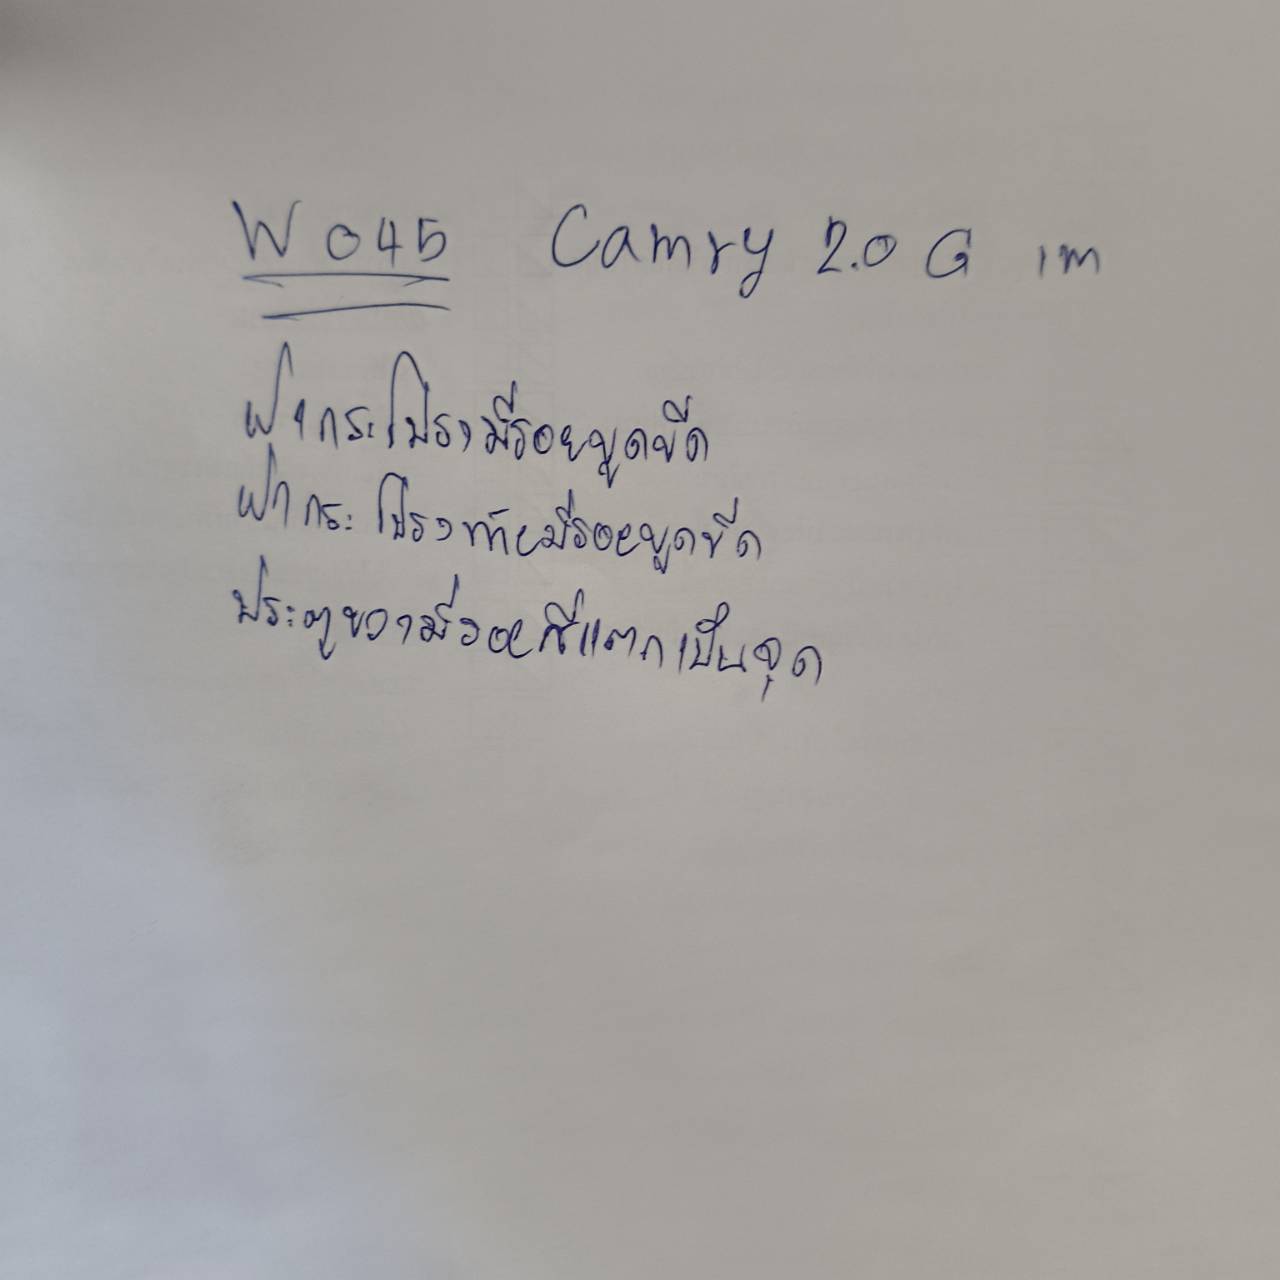 W045 Camry 2.0 G เทา
ฝากระโปรงมีรอยขูดขีด
ฝากระโปรงท้ายมีรอยขูดขีด
ประตูขวามีรอยสีแตกเป็นจุด